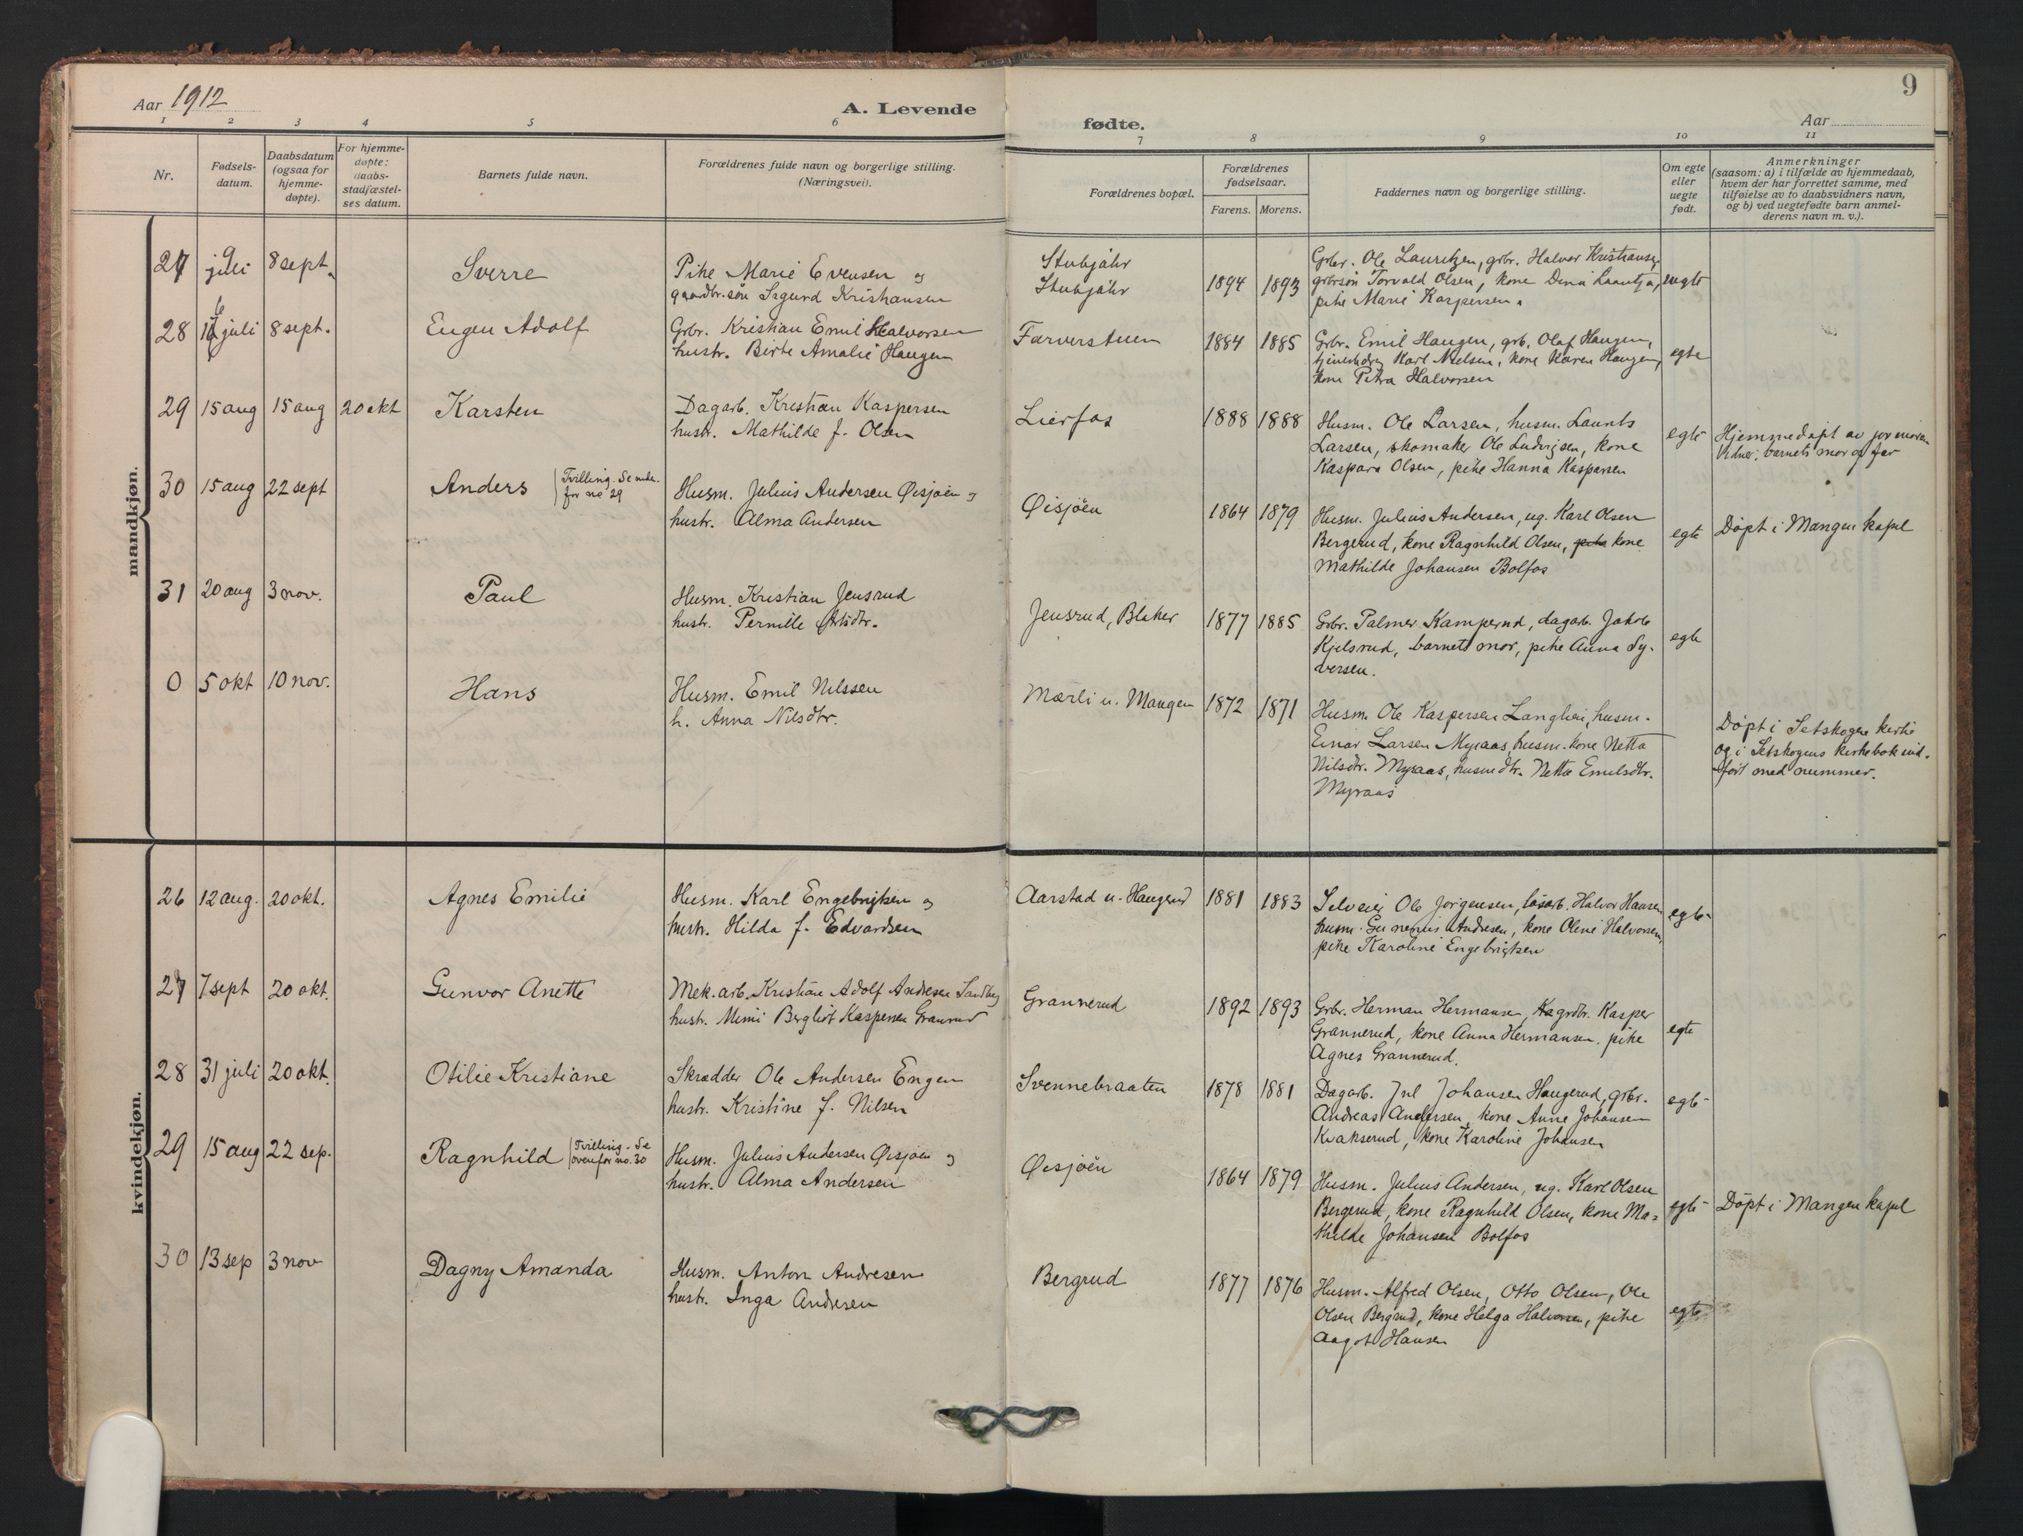 Aar 1912
A. Levende
fødte.
9
Aar
1 2 3 4 5 6 7 8 9 10 11
Nr.
Fødsels-
datum.
Daabsdatum
(ogsaa for
hjemme-
døpte).
For hjemme-
døpte:
daabs-
stadfæstel-
ses datum.
Barnets fulde navn.
Forældrenes fulde navn og borgerlige stilling.
(Næringsvei).
Forældrenes bopæl.
Forældrenes
fødselsaar.
Farens. Morens.
Faddernes navn og borgerlige stilling.
Om egte
eller
uegte
født.
Anmerkninger
(saasom: a) i tilfælde av hjemmedaab,
hvem der har forrettet samme, med
tilføielse av to daabsvidners navn,
og b) ved uegtefødte barn anmel-
derens navn m. v.).
mandkjøn.
27 9 juli 8 sept. Sverre
Pike Marie Evensen og
gaardbr.søn Sigurd Kristiansen
Stubjåhr
Stubjåhr
1894 1893
Grbr. Ole Lauritzen, grbr. Halvor Kristiansen,
grbrsøn Torvald Olsen, kone Dina
pike Marie Kaspersen.
uegte
28 16 juli 8 sept. Eugen Adolf
Grbr. Kristian Emil Halvorsen
hustr. Birte Amalie Haugen
Farverstuen
1884 1885
Grbr. Emil Haugen, grb. Olaf Haugen,
Karl Nielsen, kone Karen Haugen,
kone Petra Halvorsen
egte
29 15 aug 15 aug 20 okt Karsten
Dagarb. Kristian Kaspersen
hustr. Mathilde f. Olsen
Lierfos
1888 1888
Husm. Ole Larsen, husm. Laurits
Larsen, skomaker Ole Ludvigsen, kone
Kaspara Olsen, pike Hanna Kaspersen
egte
Hjemmedøpt av jormoren
Vidner: barnets mor og far
30 15 aug 22 sept Anders
Tvilling. Se neden-
for no 29
Husm. Julius Andersen Øisjøen og
hustr. Alma Andersen
Øisjøen
1864 1879
Husm. Julius Andersen, ug. Karl Olsen
Bergerud, kone Ragnhild Olsen, pike kone
Mathilde Johansen Bolfos
egte
Døpt i Mangen kapel
31 20 aug 3 nov. Paul
Husm. Kristian Jensrud
hustr. Pernille
Jensrud, Blaker
1877 1885
Grbr. Palmer Kamperud, dagarb. Jakob
Kjelsrud, barnets mor, pike Anna Sy-
versen.
egte
0 5 okt 10 nov. Hans
Husm. Emil Nilssen
h. Anna Nilsdtr.
Mærli u. Mangen
1872 1871
Husm. Ole Kaspersen Langlien, husm.
Einar Larsen Myraas, husm. kone Netta
Nilsdtr. Myraas, husmdtr. Netta Emilsdtr.
Myraas
Døpt i Setskogen kirke
og i Setskogens kirkebok ind-
ført med nummer.
kvindekjøn.
26 12 aug. 20 okt. Agnes Emilie
Husm. Karl Engebrigtsen og
hustr. Hilda f. Edvardsen
Aarstad u. Haugerud
1881 1883
Selveier Ole Jørgensen, løsarb. Halvor Hansen
husm. Andresen, kone Oline Halvorsen,
pike Karoline Engebrigtsen
egte
27 7 sept 20 okt. Gunvor Anette
Mek. arb. Kristian Adolf Andresen Sandberg
hustr. Mimi Bergliot Kaspersen Granerud
Grannerud
1892 1893
Grbr. Herman Hermansen, grdbr. Kasper
Grannerud, kone Anna Hermansen, pike
Agnes Grannerud.
egte
28 31 juli 20 okt. Otilie Kristiane
Skrædder Ole Andersen Engen
hustr. Kristine f. Nilsen
Svennebraaten
1878 1881
Dagarb. Jul Johansen Haugerud, grbr.
Andreas Andersen, kone Anne Johansen
Kvakserud, kone Karoline Johansen
egte
29 15 aug 22 sep. Ragnhild
Tvilling - Se
ovenfor no. 30
Husm. Julius Andersen Øisjøen og
hustr. Alma Andersen
Øisjøen
1864 1879
Husm. Julius Andersen, ug. Karl Olsen
Bergerud, kone Ragnhild Olsen, kone Ma-
thilde Johansen Bolfos
egte
Døpt i Mangen kapel
30 13 sep 3 nov Dagny Amanda
Husm. Anton Andresen
hustr. Inga Andresen
Bergrud
1877 1876
Husm. Alfred Olsen, Otto Olsen, Ole
Olsen Bergrud, kone Helga Halvorsen, pike
Aagot Hansen
egte